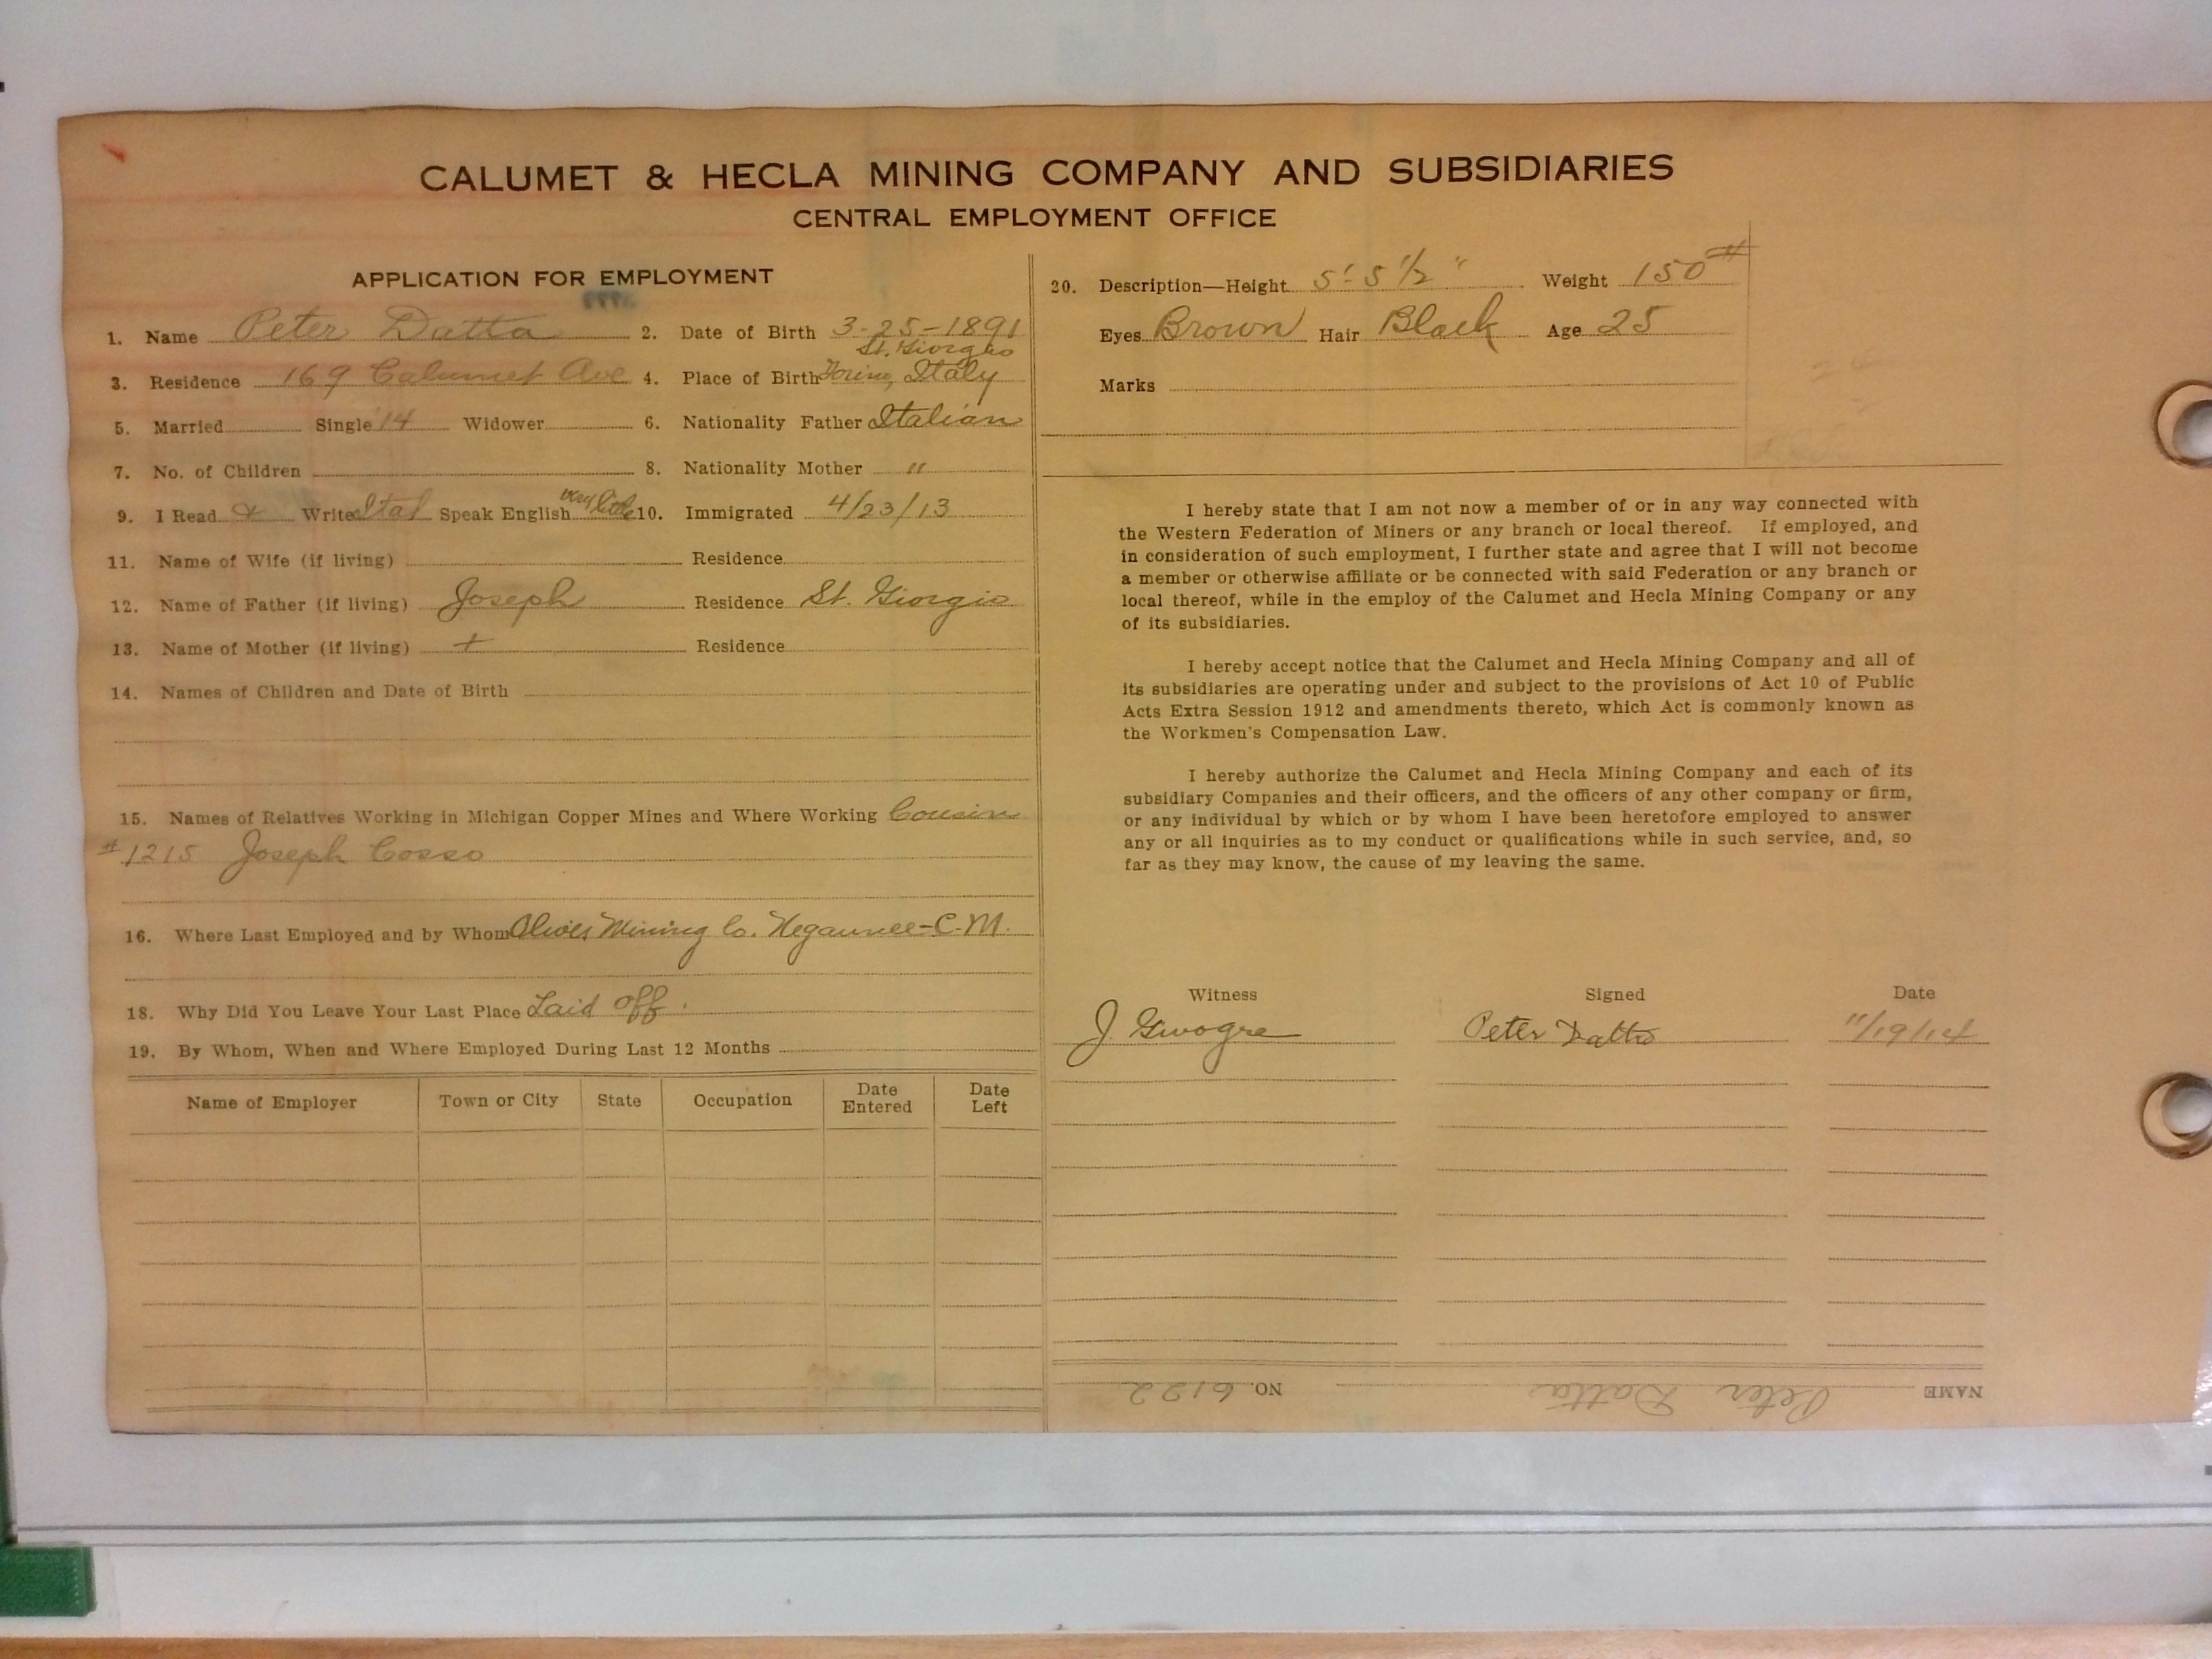 CALUMET & HECLA MINING COMPANY AND SUBSIDIARIES
CENTRAL EMPLOYMENT OFFICE
APPLICATION FOR EMPLOYMENT
1. Name Peter Datta 2. Date of Birth 3-25-1891
St. Giorgio
3. Residence 169 Calumet Ave 4. Place of Birth Torino, Italy
5. Married Single '14 Widower 6. Nationality Father Italian
7. No. of Children 8. Nationality Mother "
9. I Read & Write Ital Speak English very little 10. Immigrated 4/23/13
11. Name of Wife (if living) Residence
12. Name of Father (if living) Joseph Residence St. Giorgio
13. Name of Mother (if living) + Residence
14. Names of Children and Date of Birth
15. Names of Relatives Working in Michigan Copper Mines and Where Working Cousin
#1215 Joseph Cosso
16. Where Last Employed and by Whom Oliver Mining Co. Negaunee-C.M.
18. Why Did You Leave Your Last Place Laid off.
19. By Whom, When and Where Employed During Last 12 Months
Name of Employer Town or City State Occupation Date Entered Date Left
20. Description—Height 5'-5 1/2" Weight 150#
Eyes Brown Hair Black Age 25
Marks
I hereby state that I am not now a member of or in any way connected with
the Western Federation of Miners or any branch or local thereof. If employed, and
in consideration of such employment, I further state and agree that I will not become
a member or otherwise affiliate or be connected with said Federation or any branch or
local thereof, while in the employ of the Calumet and Hecla Mining Company or any
of its subsidiaries.
I hereby accept notice that the Calumet and Hecla Mining Company and all of
its subsidiaries are operating under and subject to the provisions of Act 10 of Public
Acts Extra Session 1912 and amendments thereto, which Act is commonly known as
the Workmen's Compensation Law.
I hereby authorize the Calumet and Hecla Mining Company and each of its
subsidiary Companies and their officers, and the officers of any other company or firm,
or any individual by which or by whom I have been heretofore employed to answer
any or all inquiries as to my conduct or qualifications while in such service, and, so
far as they may know, the cause of my leaving the same.
Witness Signed Date
J. Peter Datto 11/19/14
NAME Peter Datta NO. 6122